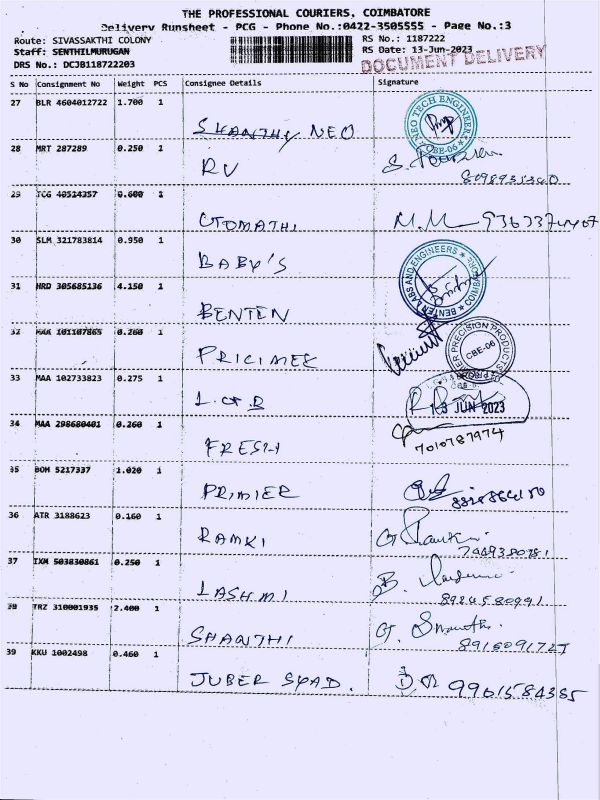 THE PROFESSIONAL COURIERS, COIMBATORE
Delivery Runsheet - PCG - Phone No.:0422-3505555 - Page No.:3
Route: SIVASSAKTHI COLONY RS No.: 1187222
Staff: SENTHILMURUGAN RS Date: 13-Jun-2023
DRS No.: DCJB118722203 DOCUMENT DELIVERY
S No Consignment No Weight PCS Consignee Details Signature
27 BLR 4604012722 1.700 1
SHANTHY NEO NEO TECH ENGINEERS CBE-06
28 MRT 287289 0.250 1
RV
29 TCG 40514357 0.600 1
GTOMATHI
30 SLM 321783814 0.950 1
BABY'S
31 HRD 305685136 4.150 1 BENTER LABS AND ENGINEERS
BENTEN
32 MAA 101107865 0.260 1 PRECISION PRODUCTS CBE-06
PRICIMEE
33 MAA 102733823 0.275 1
L.G.B 13 JUN 2023
34 MAA 298680401 0.260 1
FRESH 7010787974
35 BOM 5217337 1.020 1
PRIMIER
36 ATR 3188623 0.160 1
RAMKI
37 IXM 503830861 0.250 1
LASHMI
38 TRZ 310001935 2.400 1
SHANTHI
39 KKU 1002498 0.460 1
JUBER SYAD.